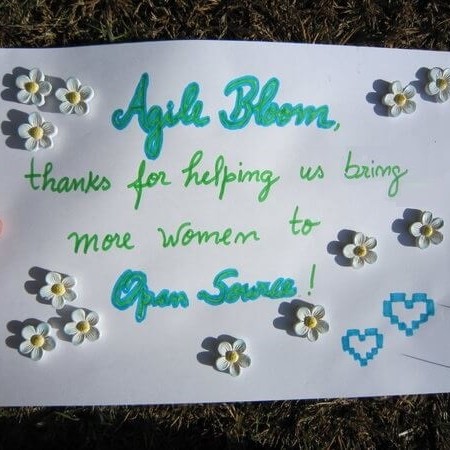 Agile Bloom,
thanks for helping us bring
more women to
Open Source!